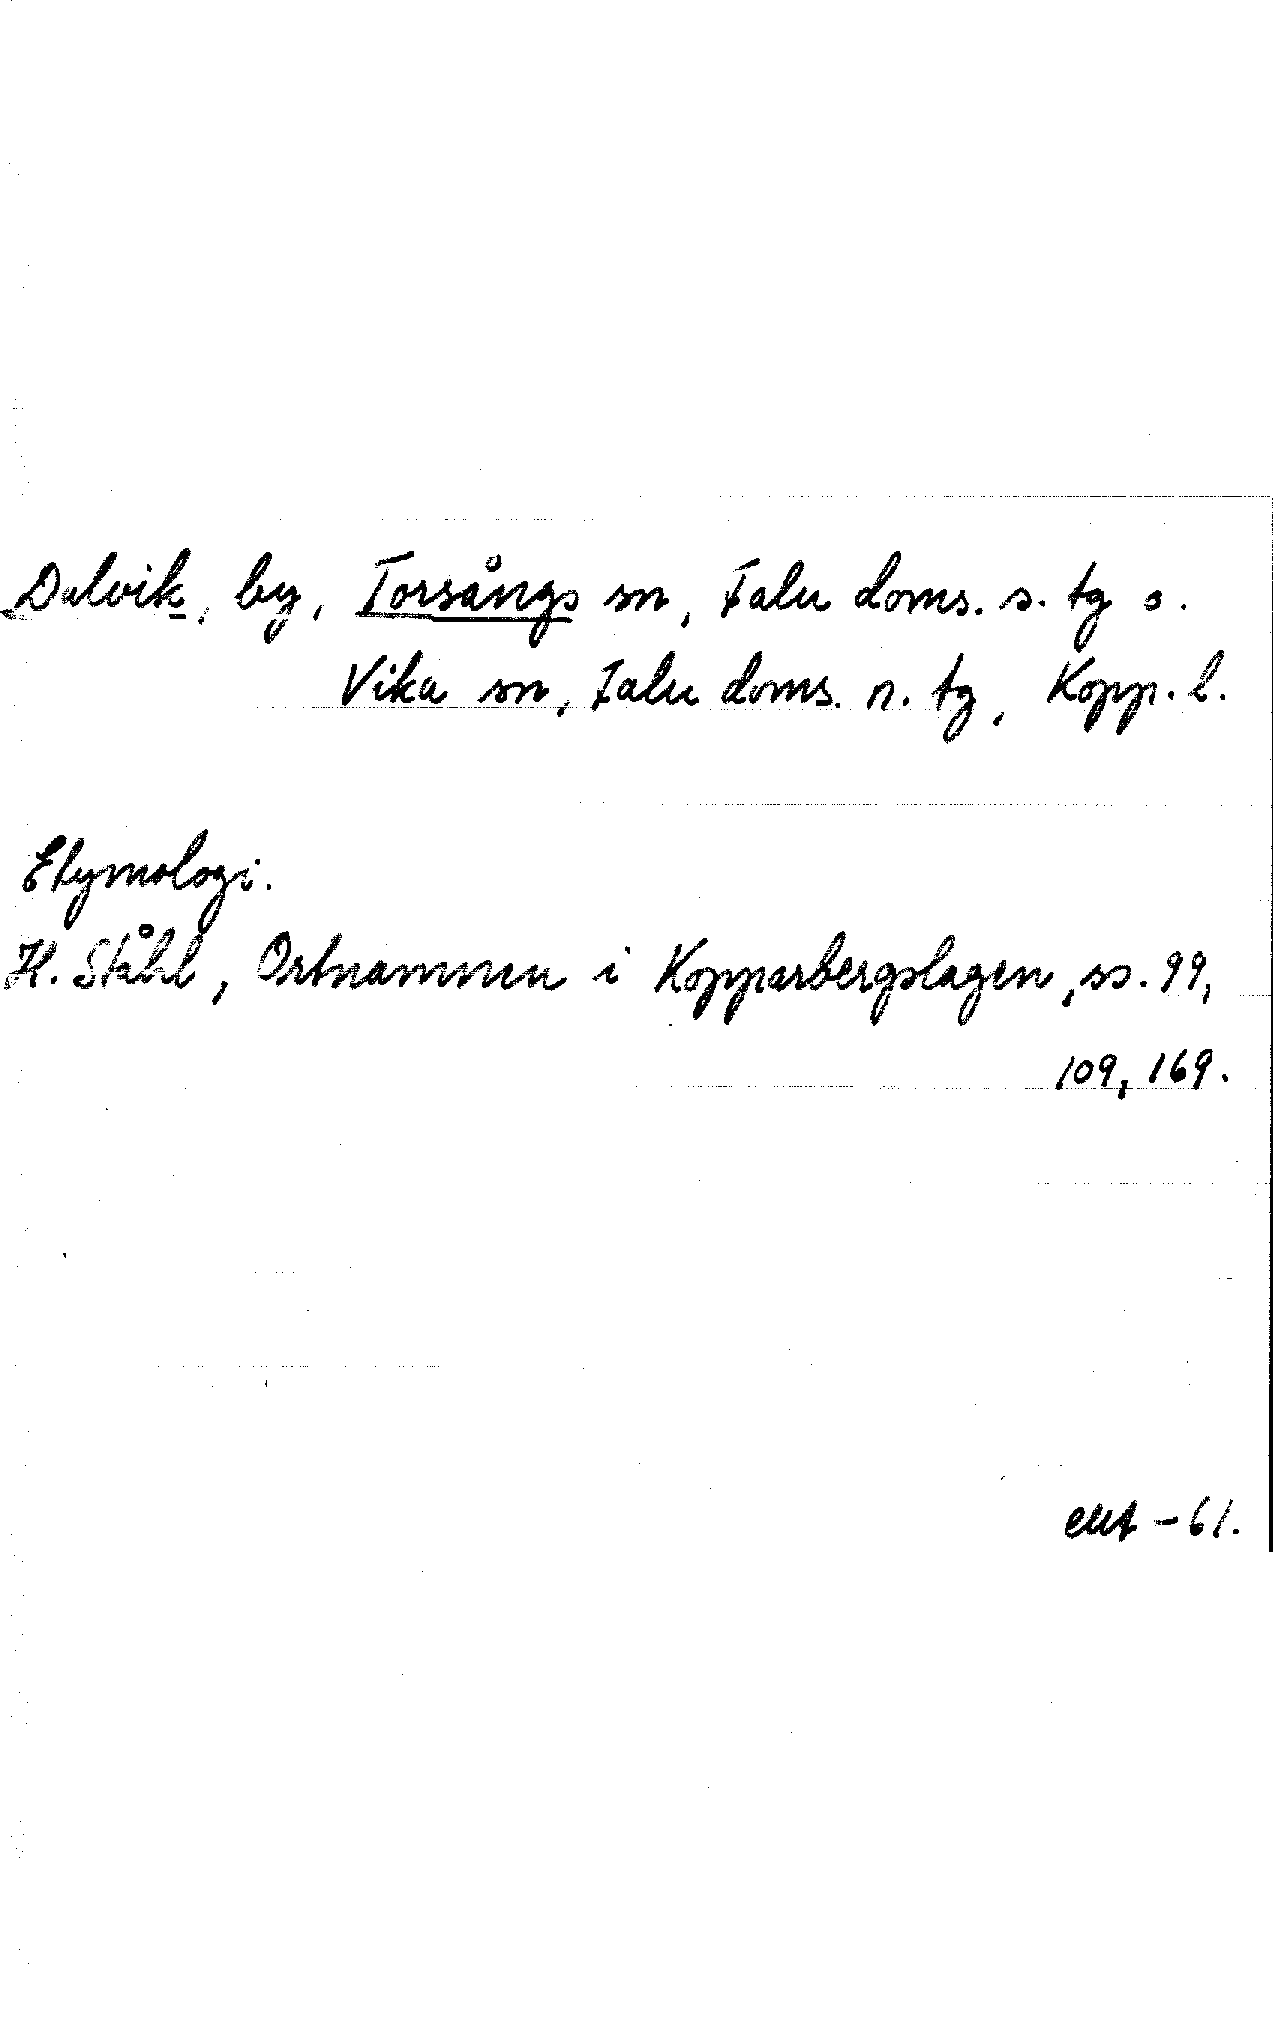 Dalvik, by, Torsångs sn, Falu doms. s. tg o.
Vika sn, Falu doms. n. tg, Kopp. l.
Etymologi.
H. Ståhl, Ortnamnen i Kopparbergslagen, ss. 99,
109, 169.
-61.